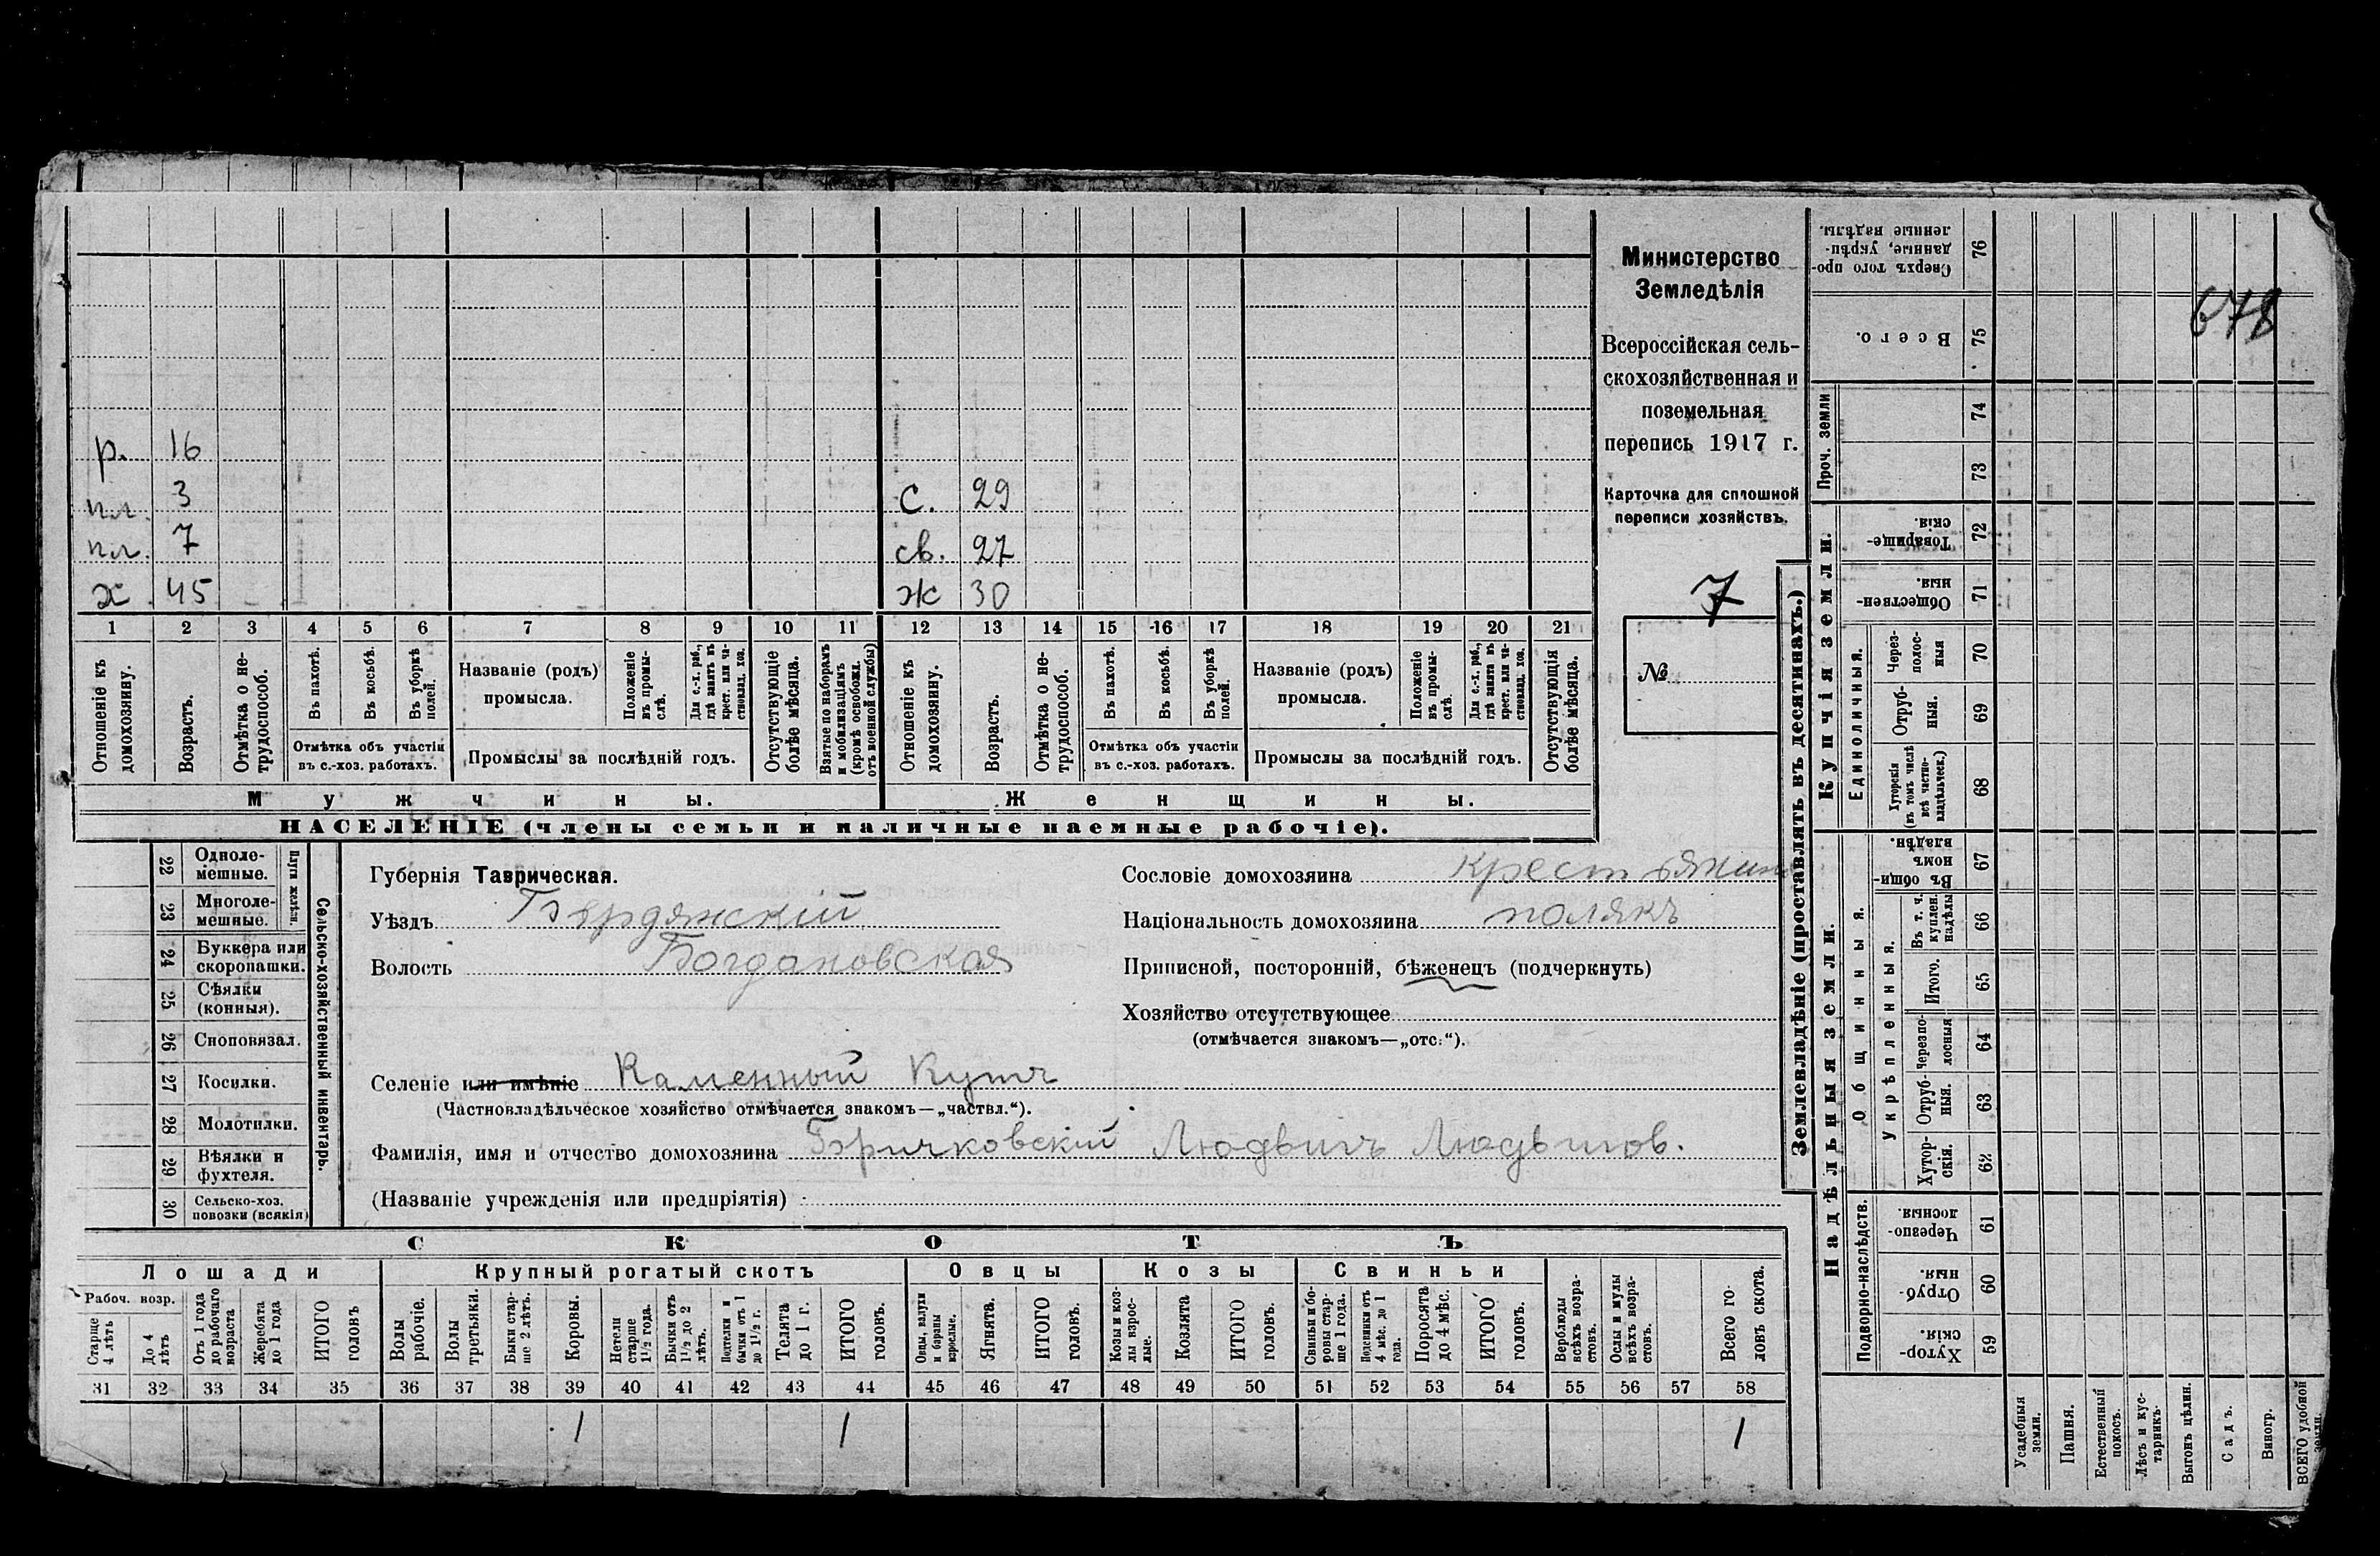 678
р. 16
пл. 3 С. 29
пл. 7 св. 27
х 45 ж 30
1 2 3 4 5 6 7 8 9 10 11 12 13 14 15 16 17 18 19 20 21
Отношеніе къ домохозяину.
Возрастъ.
Отмѣтка о нетрудоспособ.
Въ пахотѣ.
Въ косьбѣ.
Въ уборкѣ полей.
Отмѣтка объ участіи въ с.-хоз. работахъ.
Названіе (родъ) промысла.
Положеніе въ промыслѣ.
Для с.-х. раб., гдѣ занятъ въ крест. или частновлад. хоз.
Промыслы за послѣдній годъ.
Отсутствующіе болѣе мѣсяца.
Взятые по наборамъ и мобилизаціямъ (кромѣ освобожд. отъ военной службы)
Отношеніе къ домохозяину.
Возрастъ.
Отмѣтка о нетрудоспособ.
Въ пахотѣ.
Въ косьбѣ.
Въ уборкѣ полей.
Отмѣтка объ участіи въ с.-хоз. работахъ.
Названіе (родъ) промысла.
Положеніе въ промыслѣ
Для с.-х. раб., гдѣ занята въ крест. или частновлад. хоз.
Промыслы за послѣдній годъ.
Отсутствующія болѣе мѣсяца.
Мужчины. Женщины.
НАСЕЛЕНІЕ (члены семьи и наличные наемные рабочіе).
Министерство
Земледѣлія
Всероссійская сель-
скохозяйственная и
поземельная
перепись 1917 г.
Карточка для сплошной
переписи хозяйствъ.
7
№
22 Однолемешные.
23 Многолемешные.
Плуги желѣзн.
24 Буккера или скоропашки.
25 Сѣялки (конныя).
26 Сноповязал.
27 Косилки.
28 Молотилки.
29 Вѣялки и фухтеля.
30 Сельско-хоз. повозки (всякія)
Сельско-хозяйственный инвентарь.
Губернія Таврическая.
Уѣздъ Бердянскій
Волость Богдановская
Селеніе или имѣніе Каменный Кутъ
(Частновладѣльческое хозяйство отмѣчается знакомъ—„частвл.“).
Фамилія, имя и отчество домохозяина Бричковскій Людвигъ Людвигов.
(Названіе учрежденія или предпріятія)
Сословіе домохозяина крестьянинъ
Національность домохозяина полякъ
Приписной, посторонній, бѣженецъ (подчеркнуть)
Хозяйство отсутствующее
(отмѣчается знакомъ—„отс.“).
СКОТЪ
Лошади Крупный рогатый скотъ Овцы Козы Свиньи
Рабоч. возр.
Старше 4 лѣтъ
До 4 лѣтъ
Отъ 1 года до рабочаго возраста
Жеребята до 1 года
ИТОГО головъ
Волы рабочіе.
Волы третьяки.
Быки старше 2 лѣтъ.
Коровы.
Нетели старше 1½ года.
Бычки отъ 1½ до 2 лѣтъ.
Подтелки и бычки отъ 1 до 1½ г.
Телята до 1 г.
ИТОГО головъ.
Овцы, валухи и бараны взрослые.
Ягнята.
ИТОГО головъ.
Козы и козлы взрослые.
Козлята
ИТОГО головъ.
Свиньи и боровы старше 1 года.
Подсвинки отъ 4 мѣс. до 1 года.
Поросята до 4 мѣс.
ИТОГО головъ.
Верблюды всѣхъ возрастовъ.
Ослы и мулы всѣхъ возрастовъ.
Всего головъ скота.
31 32 33 34 35 36 37 38 39 40 41 42 43 44 45 46 47 48 49 50 51 52 53 54 55 56 57 58
1 1 1
Землевладѣніе (проставлять въ десятинахъ.)
Сверхъ того проданные, укрѣпленные надѣлы. 76
Всего. 75
Проч. земли 74
73
Купчія земли.
Товарищескія. 72
Общественныя. 71
Единоличныя.
Черезполосныя 70
Отрубныя. 69
Хуторскія (въ томъ числѣ всѣ частновладѣльческ.) 68
Надѣльныя земли.
Общинныя.
Въ общинномъ владѣн. 67
Укрѣпленныя.
Въ т. ч. куплен. надѣлы 66
Итого. 65
Черезполосныя 64
Отрубныя. 63
Хуторскія. 62
Подворно-наслѣдств.
Черезполосныя. 61
Отрубныя. 60
Хуторскія. 59
Усадебныя земли.
Пашня.
Естественный покосъ.
Лѣсъ и кустарникъ.
Выгонъ цѣлин.
Садъ.
Виногр.
ВСЕГО удобной земли.